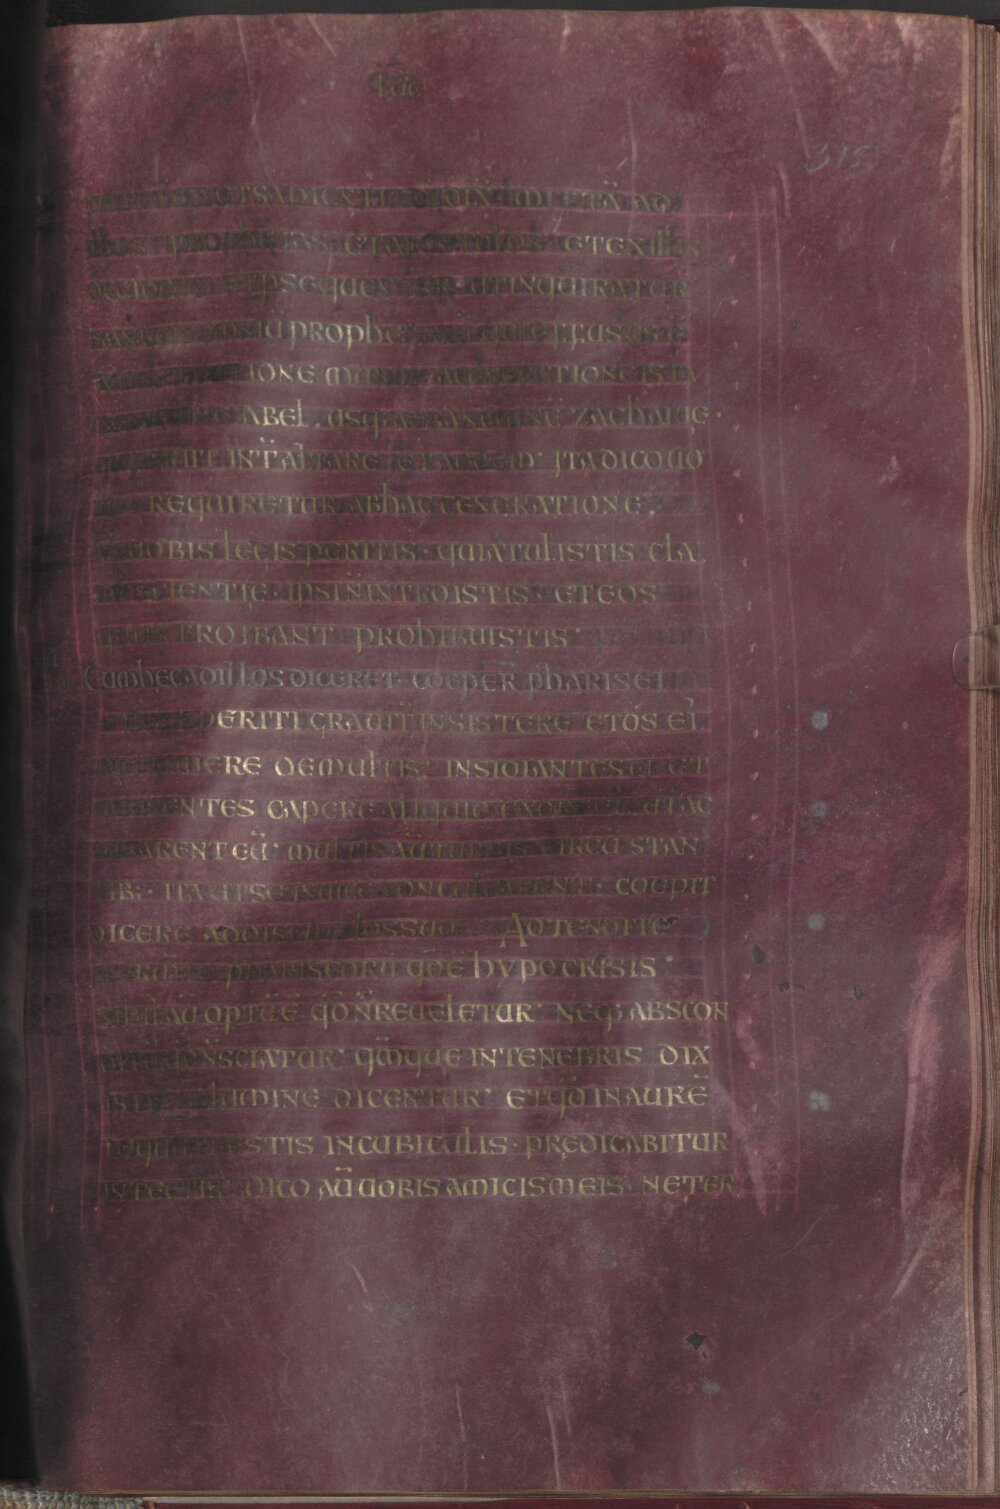 Luc
315
SAPIENTIA DI DIXIT MITTAM AD
illos prophetas et apostolos et ex illis
occident et persequentur ut inquiratur
sanguis omniū prophetarū qui effusus est
constitutione mundi a generatione ista
Abel usq: ad sanguinē Zacharię ·
qui periit inť altare et aedem · Ita dico uo
requiretur ab hac generatione ;
Vę uobis legis peritis · quia tulistis cla
scientię · ipsi ñ introistis · et eos
qui introibant prohibuistis ·
Cum hęc ad illos diceret coeper̃ pharisei
periti grauiť insistere et os ei
opprimere de multis · insidiantes ei et
quaerentes capere aliquid ex ore eius ut ac
cusarent eū · multis aū turbis circū stan
tib; · ita ut se inuicē conculcarent · coepit
dicere ad discipulos suos · Adtendite
fermento pharisaeorū qđ ē hypocrisis ·
Nihil aū optū ē qđ ñ reueletur · neq; abscon
ditū qđ ñ sciatur · qm̄ quę in tenebris dix
istis in lumine dicentur · et qđ in aurē
locuti estis in cubiculis · prędicabitur
in tectis · Dico aū uobis amicis meis · ne ter